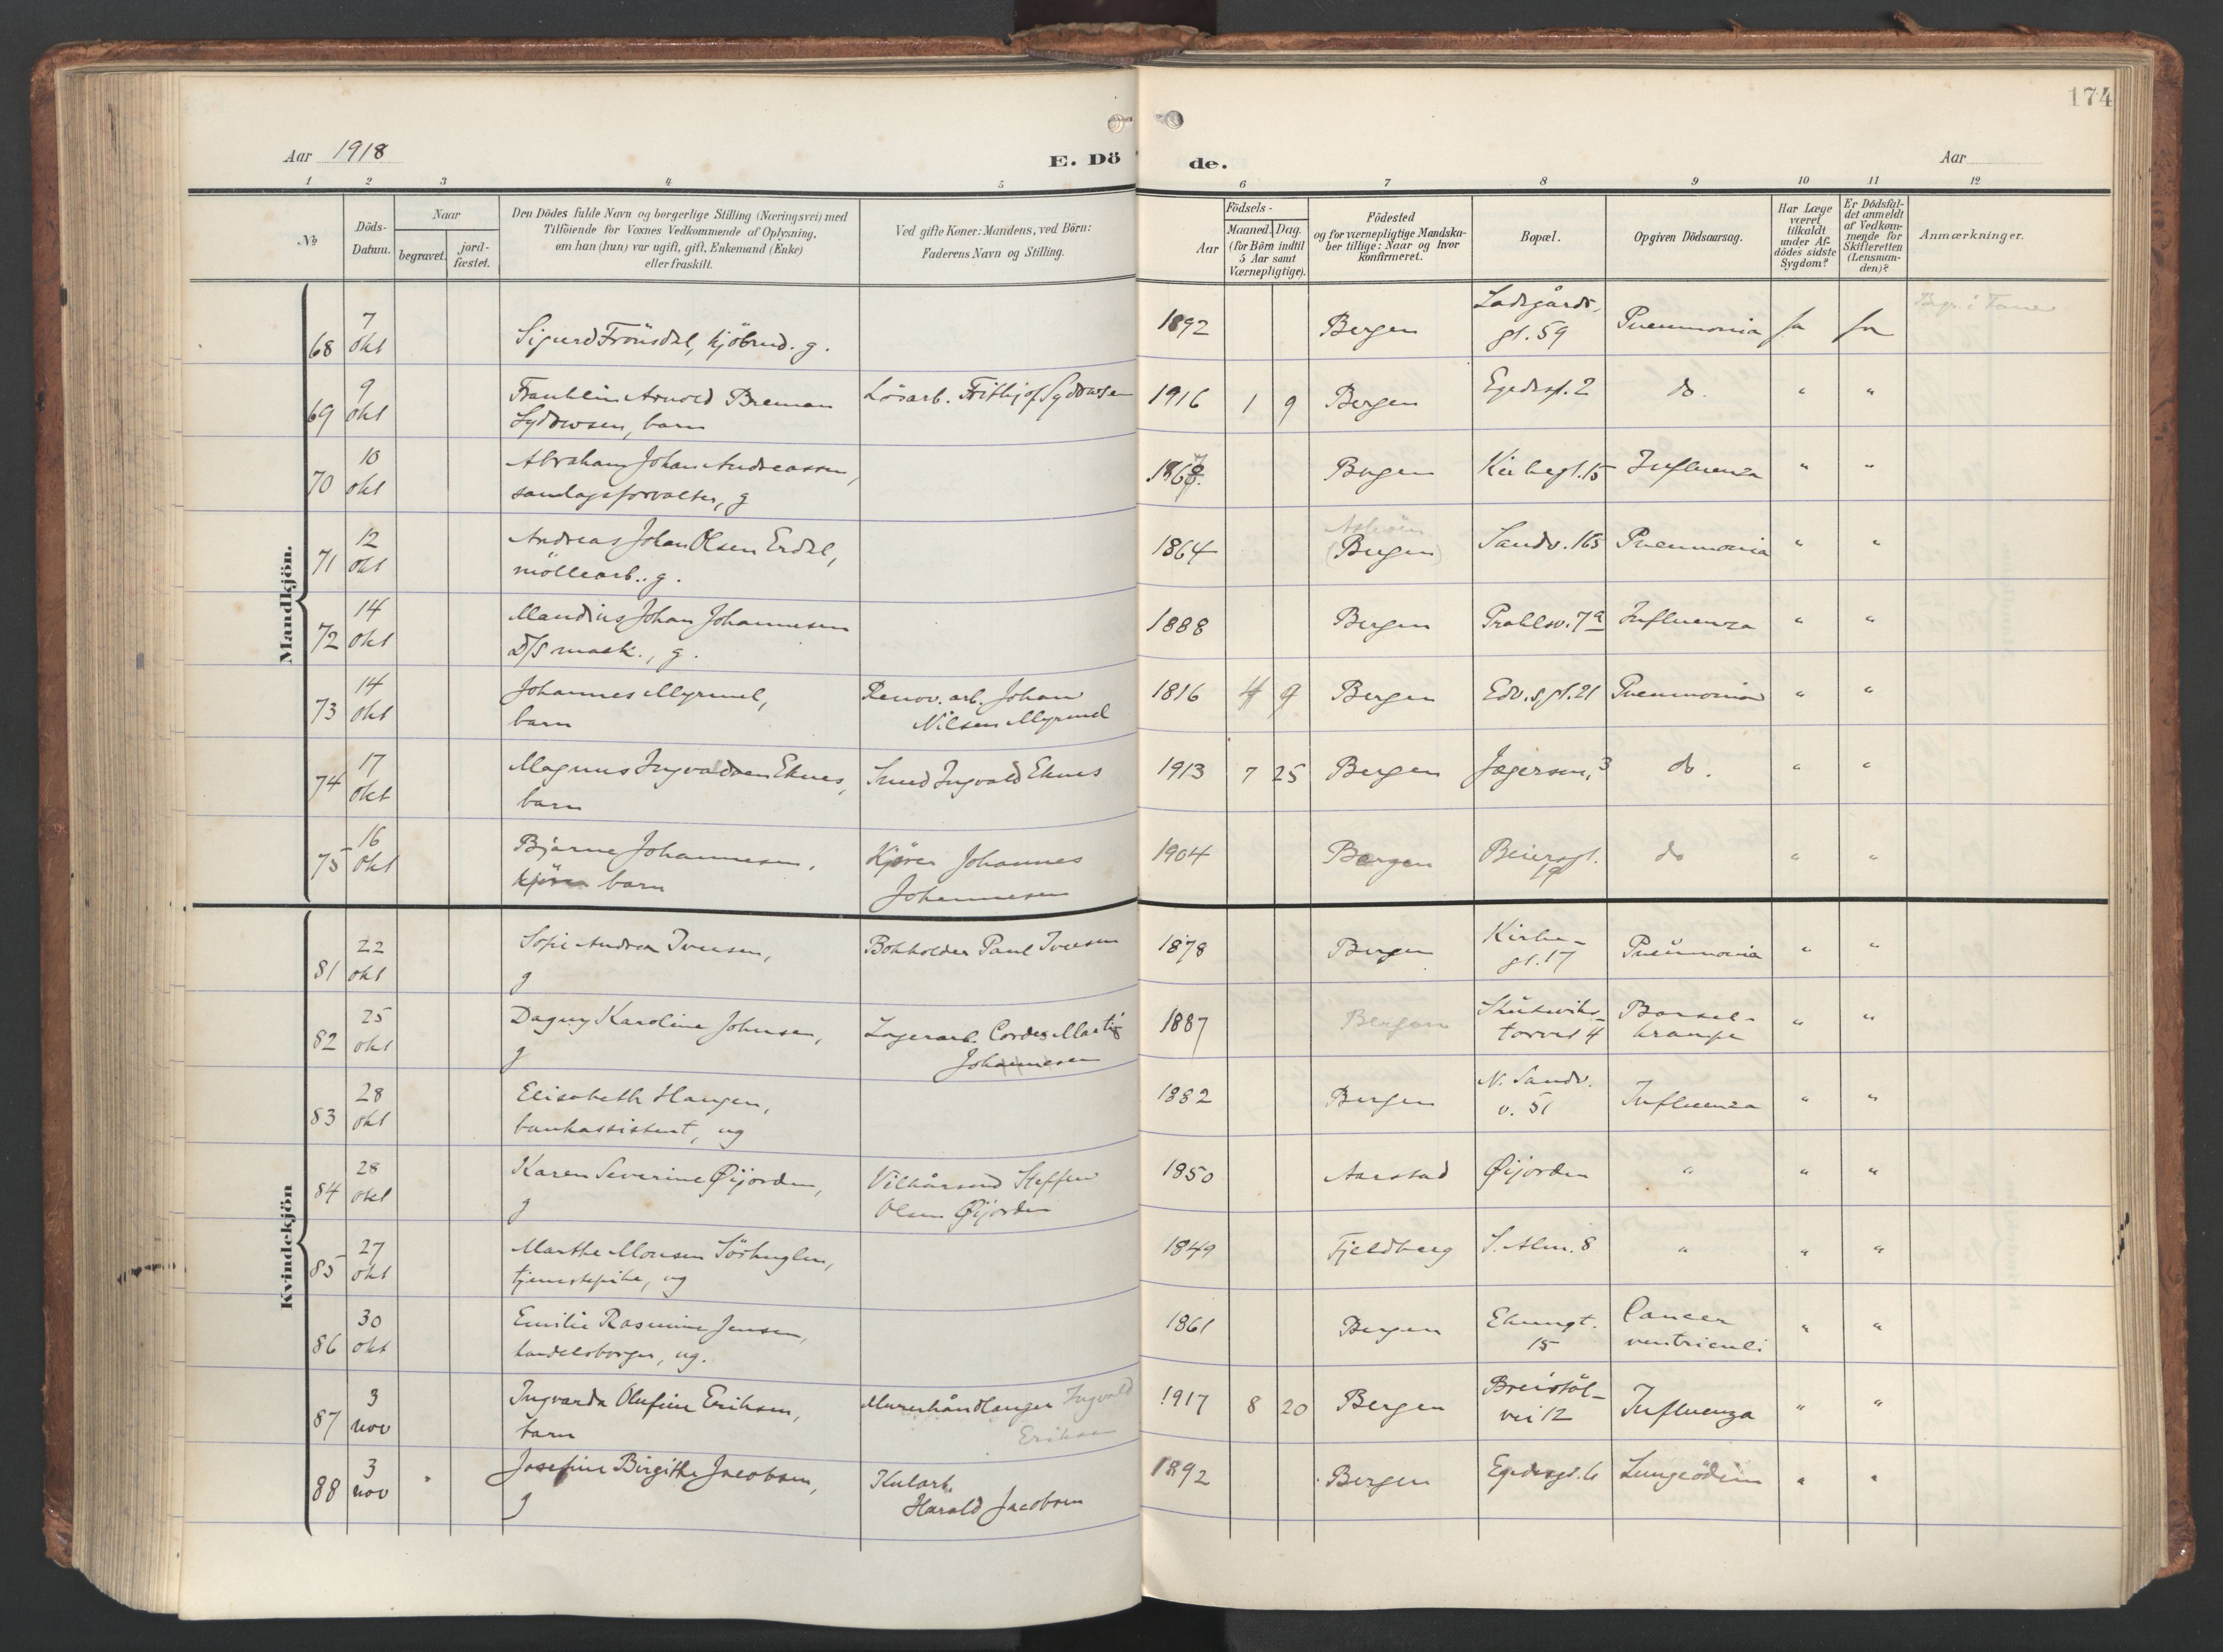 174
Aar 1918
E. Dö
de.
Aar
1 2 3 4 5 6 7 8 9 10 11 12
№
Döds-
Datum.
Naar
begravet.
jord-
fæstet.
Den Dödes fulde Navn og borgerlige Stilling (Næringsvei) med
Tilföiende for Voxnes Vedkommende af Oplysning,
om han (hun) var ugift, gift, Enkemand (Enke)
eller fraskilt.
Ved gifte Koner: Mandens, ved Börn:
Faderens Navn og Stilling.
Födsels-
Aar
Maaned. Dag.
(for Börn indtil
5 Aar samt
Værnepligtige).
Födested
og for værnepligtige Mandska-
ber tillige: Naar og hvor
konfirmeret.
Bopæl.
Opgiven Dödsaarsag.
Har Læge
været
tilkaldt
under Af-
dödes sidste
Sygdom?
Er Dödsfal-
det anmeldt
af Vedkom-
mende for
Skifteretten
(Lensman-
den)?
Anmærkninger.
Mandkjön.
68 7 okt Sigurd Frönsdal, kjöbmd. g. 1892 Bergen Ladegårds-
gt. 59 Pneumonia ja ja
69 9 okt Franklin Arnold Breman
Sydowsen, barn
Lösarb. Frithjof Sydowsen 1916 1 9 Bergen Egedsgt. 2 do. " "
70 10 okt Abraham Johan Andreassen,
g
Bergen Kirkegt. 15 Influenza " "
71 12 okt Andreas Johan Olsen Erdal,
möllearb. g.
1864 (Bergen) Sandv. 165 Pneumonia " "
72 14 okt Mandius Johan Johannesen
D/S mask., g.
1888 Bergen Prahlsv. 7a Influenza " "
73 14 okt Johannes Myrmel,
barn
Renov. arb. Johan
Nilsen Myrmel
1816 4 9 Bergen Edv. s gt. 21 Pneumonia " "
74 17 okt Magnus Ingvaldsen Eknes,
barn
Smed Ingvald Eknes 1913 7 25 Bergen Jægersm. 3 do. " "
75 16 okt Bjarne Johannesen,
kjörer barn
Kjører Johannes
Johannesen
1904 Bergen Beiersgt.
19 do " "
Kvindekjön
81 22 okt Sofie Andrea Iversen,
g
Bokholder Paul Iversen 1878 Bergen Kirke-
gt. 17 Pneumonia " "
82 25 okt Dagny Karoline Johnsen,
g
Lagerarb. Cordes Martin
Johannesen
1887 Bergen Skuteviks-
torvet 4 Barsel-
krampe " "
83 28 okt Elisabeth Haugen,
bankassistent, ug
1882 Bergen N. Sandv.
v. 51 Influenza " "
84 28 okt Karen Severine Øijorden,
g
Vilkårsmd Steffen
Olsen Øijorden
1850 Aarstad Øijorden " " "
85 27 okt Marthe Monsen Sörhuglen,
tjenestepike, ug
1849 Fjeldberg S. Alm. 8 " " "
86 30 okt Emilie Rasmine Jensen,
handelsborger, ug.
1861 Bergen Ekregt.
15 Cancer
ventriculi " "
87 3 nov Ingvarda Olufine Eriksen,
barn
Murerhåndlanger Ingvald
Eriksen
1917 8 20 Bergen Breistöl-
vei 12 Influenza " "
88 3 nov Josefine Birgithe Jacobsen,
g
Kularb.
Harald Jacobsen
1892 Bergen Egedesgt. 6 Lungeödem " "